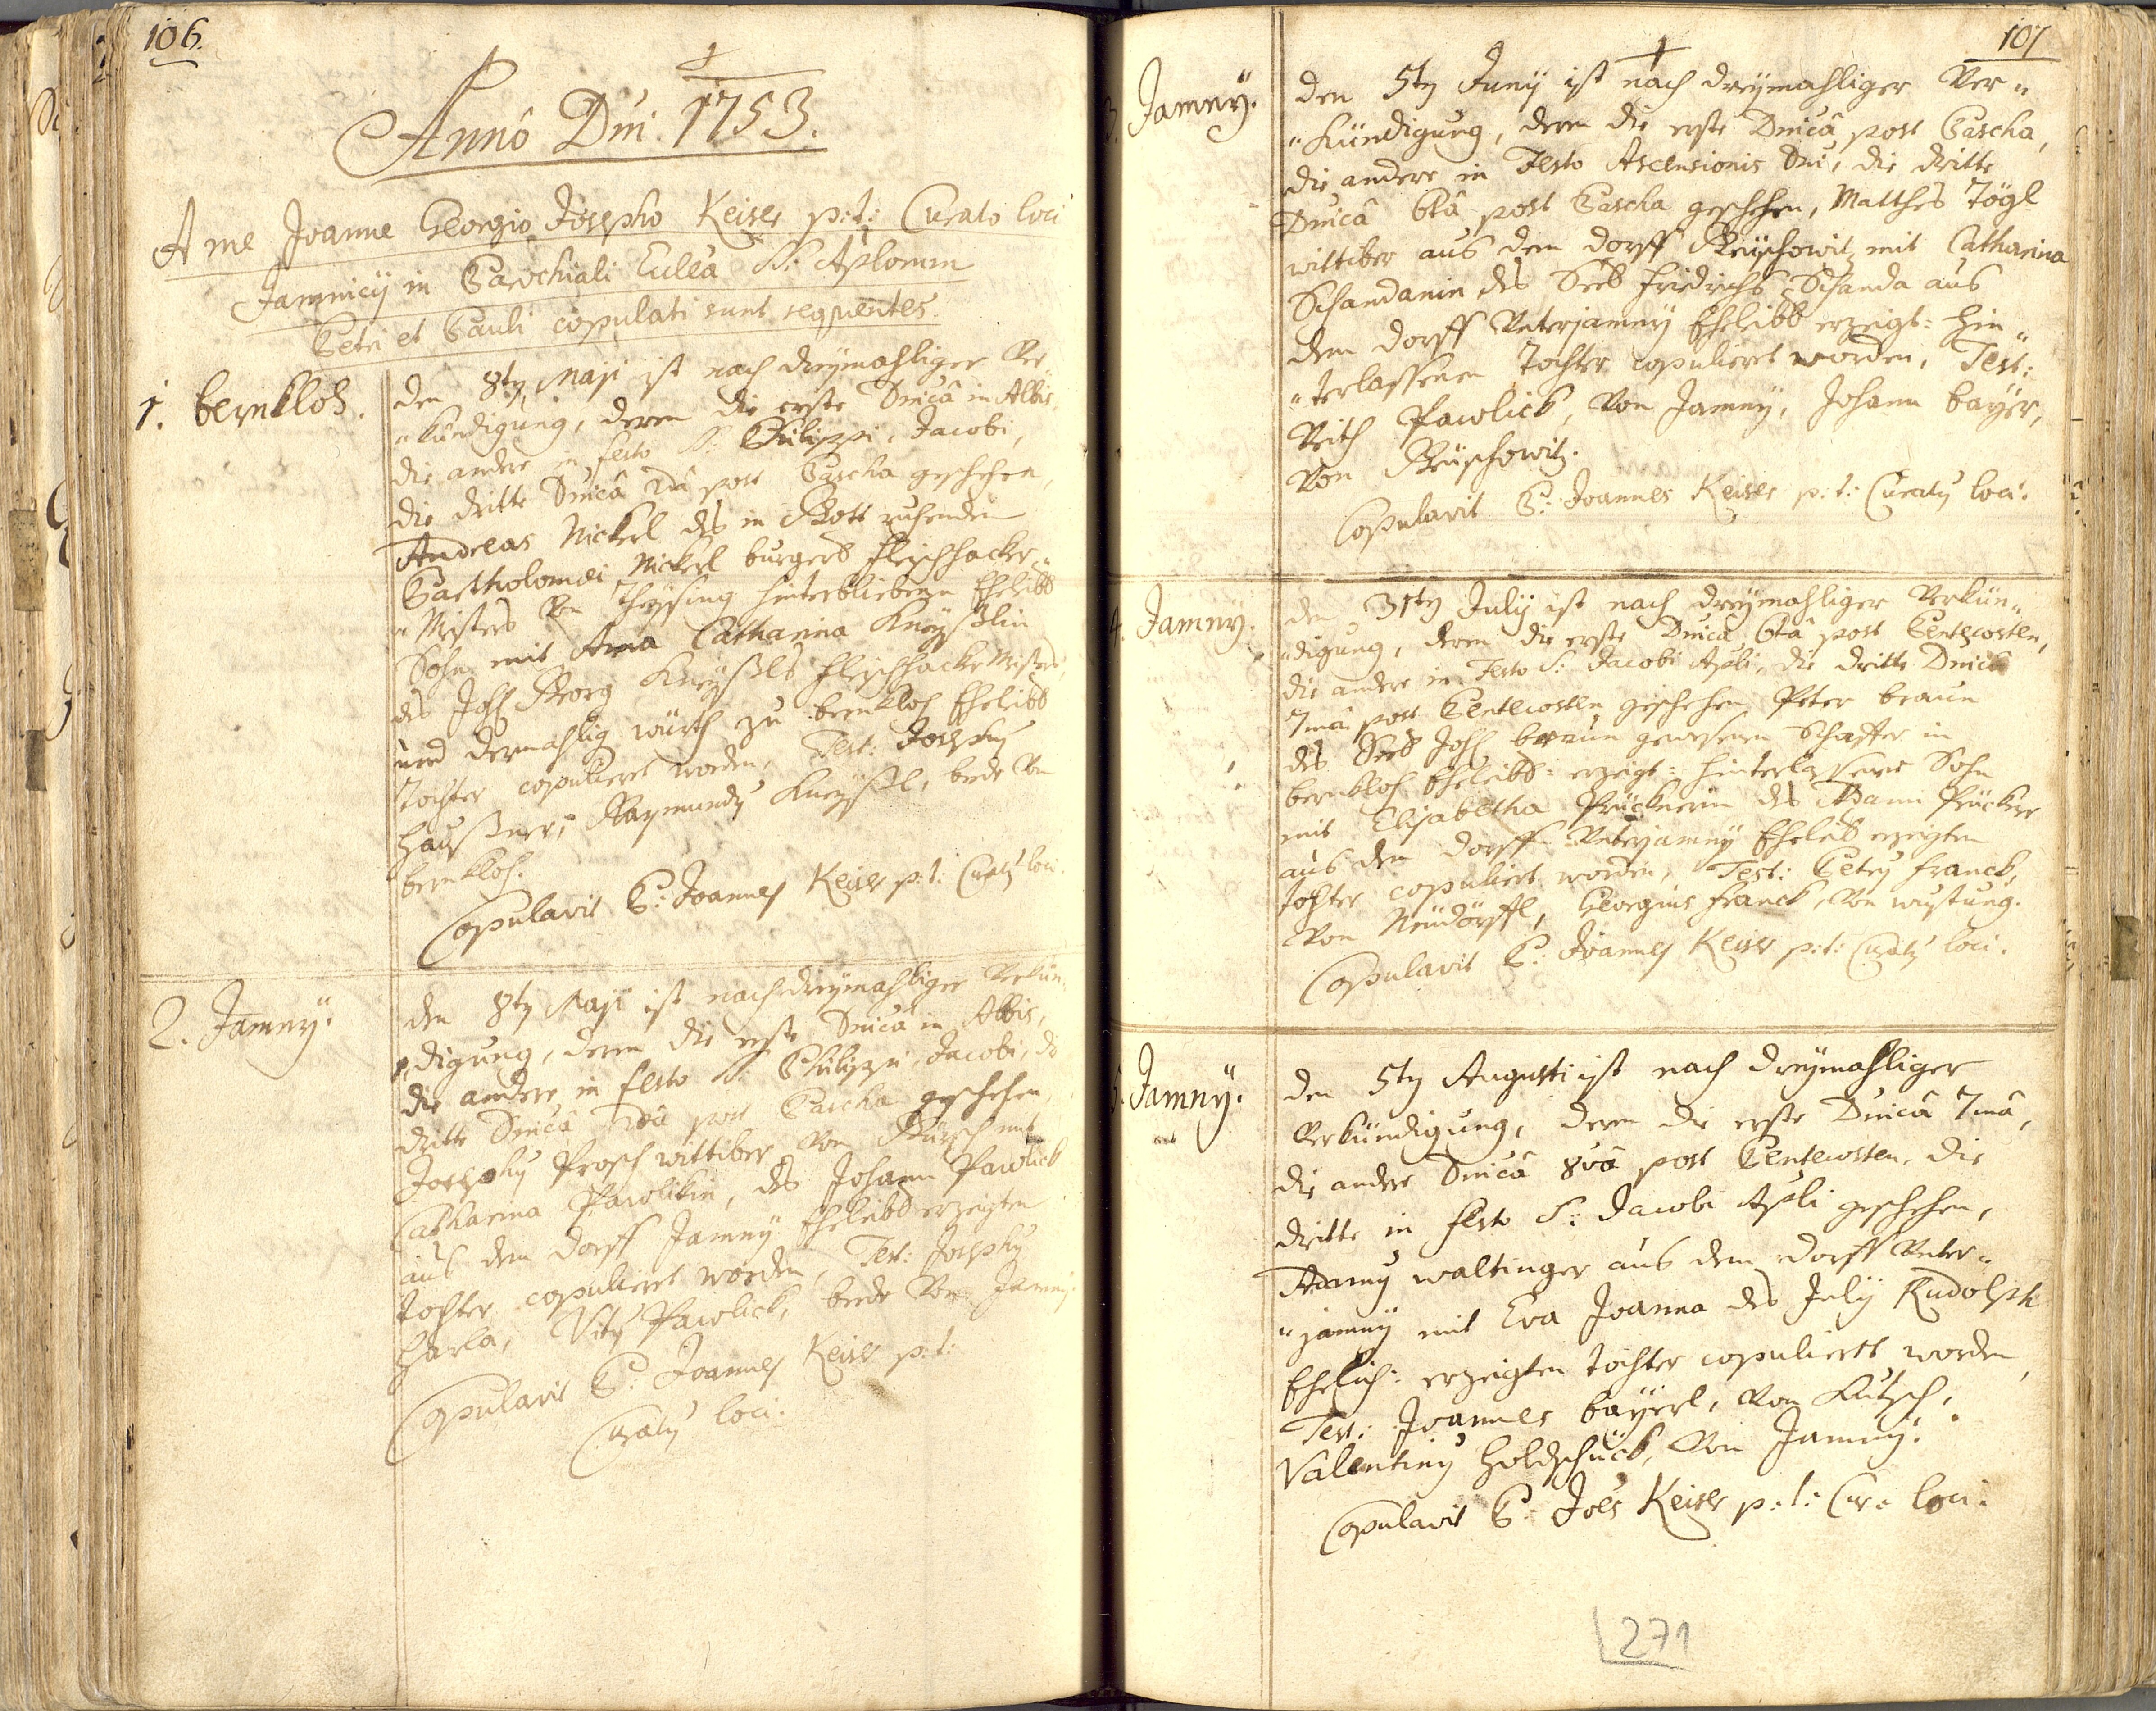 106.
Annô Dni. 1753.
A me Joanne Georgio Josepho Keiser p: t: Curato loci
Jamnicÿ in Parochiali Ecclêa SS: Aplorum
Petri et Pauli copulati sunt sequentes.
1. bernkloh.
den 8ty Maji ist nach dreÿmahliger Ver„
„kündigung, deren die erste Dnicâ in Albis,
die andere in festo SS: Philippi, Jacobi,
die dritte Dnicâ 2dâ post Pascha geschehen,
Andreas Nickerl des in Gott ruhenden
Bartholomæi Nickerl burgers fleischhacker„
„Meisters von Theÿsing hinterbliebene Eheleibl
Sohn mit Anna Catharina Kneÿßlin
des Joh Georg Kneÿßls fleischhacker Meisters
und dermahlig würth zu bernkloh Eheleibl
Tochter copulieret worden, Test: Josephy
Haußner, Raymundy Kneÿßl, beede von
bernkloh.
Copulavit P: Joannes Keiser p: t: Curaty loci
2. Jamnÿ.
den 8ty Maji ist nach dreÿmahliger Verkün„
„digung, deren die erste Dnicâ in Albis,
die andere in festo SS: Philippi, Jacobi, die
dritte Dnicâ 2dâ post Pascha geschehen,
Josephy Prosch wittiber von mit
Catharina Pawlikin, des Johann Pawlick
aus dem dorff Jamnÿ Eheleibl erzeigten
tochter copulieret worden, Test: Josephy
Harla, Vity Pawlick, beede von Jamnÿ.
Copulavit P: Joannes Keiser p: t:
Curaty loci.
107
3. Jamnÿ.
den 5ty Junÿ ist nach dreÿmahliger Ver„
„kündigung, deren die erste Dnicâ post Pascha,
die andere in Festo Ascensionis Dni, die dritte
Dnicâ 6tâ post Pascha geschehen, Matthes Tögl
wittiber aus dem dorff mit Catharina
Schandanin des Seel Friedrichs Schanda aus
dem dorff Unterjamnÿ Eheleibl erzeigt: hin„
„terlassenen tochter copulieret worden, Test:
Veith Pawlick, von Jamnÿ, Johann baÿer,
von
Copulavit P: Joannes Keiser p: t: Curaty loci.
4. Jamnÿ.
den 31ty Julÿ ist nach dreÿmahliger Verkün„
„digung, deren die erste Dnicâ 6tâ post Pentecosten,
die andere in Festo S: Jacobi Apli, die dritte Dnicâ
7mâ post Pentecosten geschehen, Peter braun
des Seel Joh braun gewesenen Schaffer in
bernkloh Eheleibl: erzeigt: hinterlassene Sohn
mit Elisabetha Prücknerin des Adami Prückner
aus dem dorff Unterjamnÿ Eheleibl erzeigten
tochter copuliert worden, Test: Petry franck,
von Neudörffl, Georgius franck, von wustung.
Copulavit P: Joannes Keiser p: t: Curaty loci.
5. Jamnÿ.
den 5ty Augusti ist nach dreÿmahliger
Verkündigung, deren die erste Dnicâ 7mâ,
die andere Dnicâ 8vâ post Pentecosten, die
dritte in festo S: Jacobi Apli geschehen,
Adamy waltinger aus dem dorff Unter„
„jamnÿ mit Eva Joanna des Rudolph
Ehelich: erzeigten tochter copuliertt worden,
Test: Joannes baÿerl, von Kutsch,
Valentiny Holdschück, von Jamnÿ.
Copulavit P: Joês Keiser p: t: Cur: loci.
271